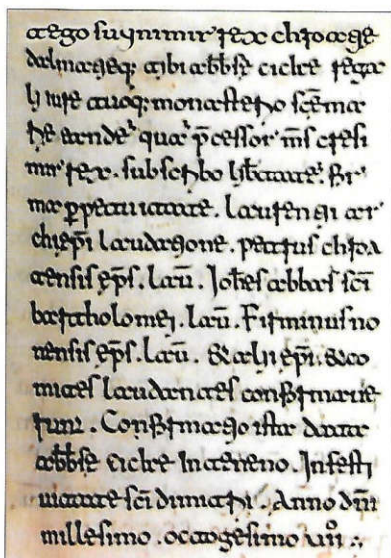 ego suinimir rex chroatie
dalmatieq; tibi abbse ciclre rega
li iure tuoq; monasterio scē ma
rie eandē quā p̄cessor m̄s cresi
mir rex. subscribo libtate. fir
ma ppetuitate. laurentii ar
chiepī laudatione. petrus chroa
tensis ep̄s. laū. Ioh̄es abbas scī
bartholomei. laū. Firminus no
nensis ep̄s. laū. & alii epī. & co
mites laudantes confirmaue
runt. Confirmatio ista data
abbse ciclre In teneno. In festi
uitate scī dimitrii. Anno dn̄i
millesimo. octogesimo